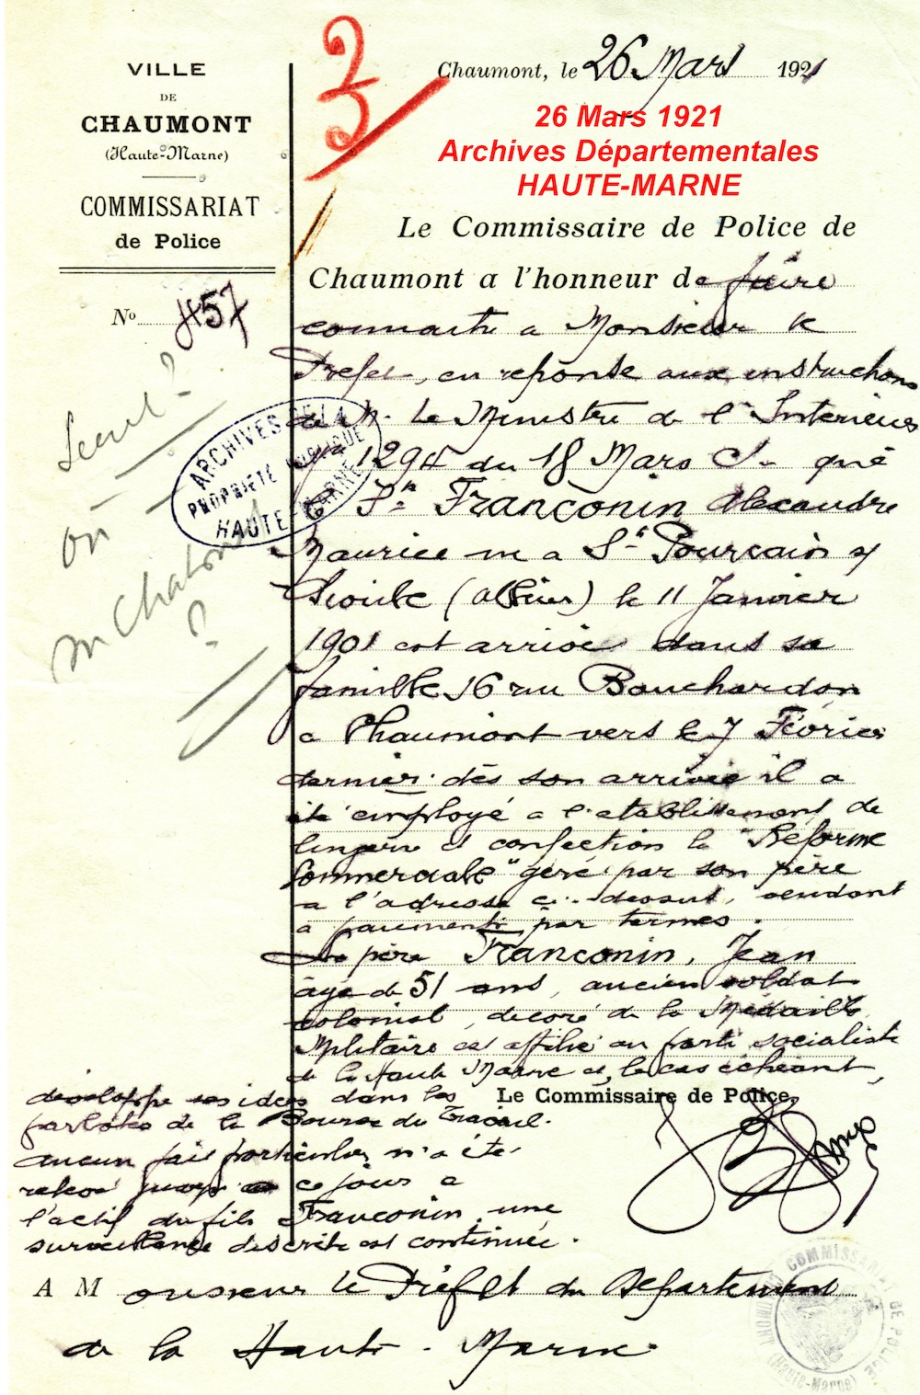 VILLE
DE
CHAUMONT
(Haute-Marne)
COMMISSARIAT
de Police
No 457
Chaumont, le 26 Mars 1921
26 Mars 1921
Archives Départementales
HAUTE-MARNE
Le Commissaire de Police de
Chaumont a l'honneur de faire
connaitre a Monsieur le
Prefet, en reponse aux instructions
de M. le Ministre de l'Interieur
1294 du 18 Mars Ct que
le Sr Franconin Alexandre
Maurice né a St Pourcain s/
Sioule (Allier) le 11 Janvier
1901 est arrivé dans sa
famille 16 rue Bouchardon
a Chaumont vers le 7 Février
dernier. dés son arrivée il a
été employé a l'etablissement de
lingerie et confection la "Reforme
Commerciale" géré par son père
a l'adresse ci-dessus, vendant
a paiements par termes.
Le père Franconin, Jean
agé de 51 ans, ancien soldat
colonial, décoré de la Médaille
Militaire est affilié au parti socialiste
de la Haute Marne et, le cas échéant,
développe ses idées dans les
parlotes de la Bourse du Travail.
aucun fait particulier n'a été
relevé jusqu'a ce jour a
l'actif du fils Franconin, une
surveillance discrète est continuée.
Le Commissaire de Police,
A Monsieur le Préfet du Département
de la Haute-Marne
ou
M Chatonet
?
ARCHIVES DE LA
PROPRIÉTÉ PUBLIQUE
HAUTE-MARNE
COMMISSARIAT DE POLICE
(Haute-Marne)